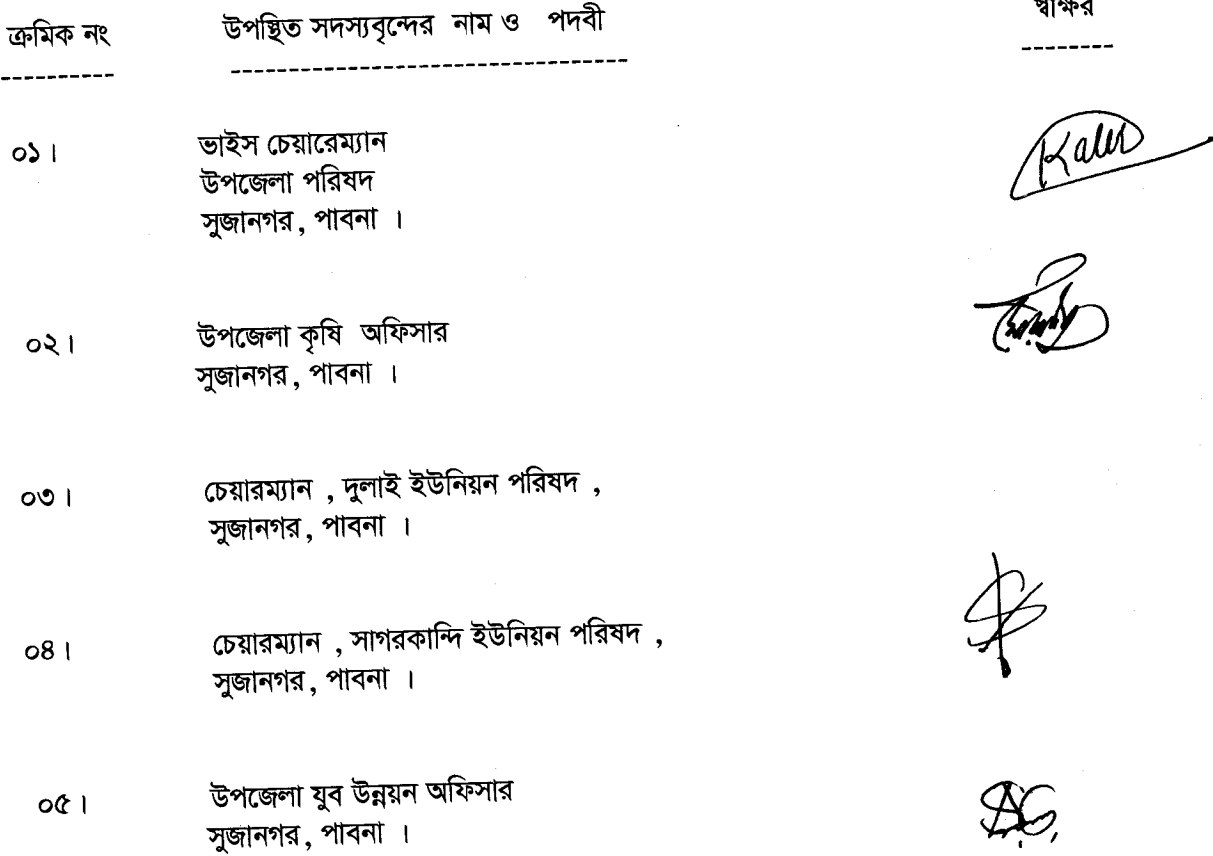 ক্রমিক নং উপস্থিত সদস্যবৃন্দের নাম ও পদবী স্বাক্ষর
০১। ভাইস চেয়ারেম্যান
উপজেলা পরিষদ
সুজানগর, পাবনা ।
০২। উপজেলা কৃষি অফিসার
সুজানগর, পাবনা ।
০৩। চেয়ারম্যান , দুলাই ইউনিয়ন পরিষদ ,
সুজানগর, পাবনা ।
০৪। চেয়ারম্যান , সাগরকান্দি ইউনিয়ন পরিষদ ,
সুজানগর, পাবনা ।
০৫। উপজেলা যুব উন্নয়ন অফিসার
সুজানগর, পাবনা ।